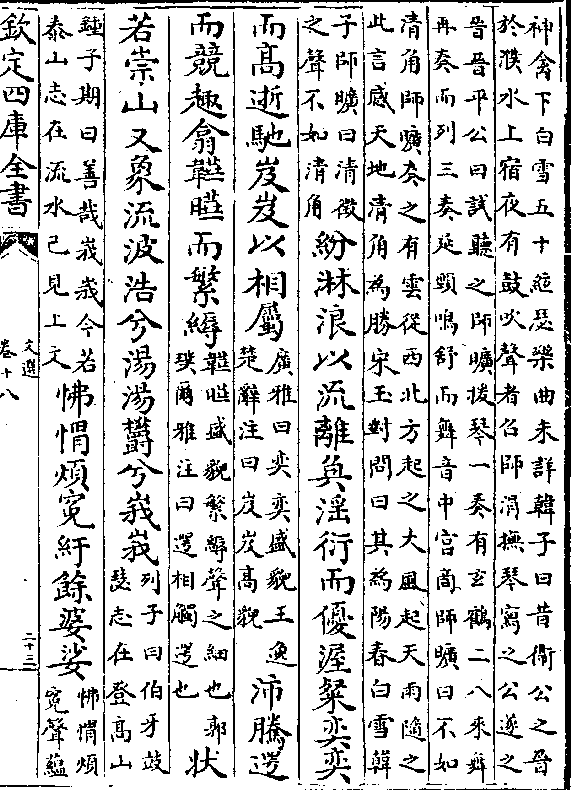 神禽下白雪五十絃瑟樂曲未詳韓子曰昔衛公之晉
於濮水上宿夜有鼓吹聲者召師涓撫琴寫之公遂之
晉晉平公曰試聽之師曠援琴一奏有玄鶴二八來舞
再奏而列三奏延頸鳴舒而舞音中宫商師曠曰不如
清角師曠奏之有雲從西北方起之大風起天雨隨之
此言感天地清角為勝宋玉對問曰其為陽春白雪韓
子師曠曰清徵
之聲不如清角
紛淋浪以流離奐淫衍而優渥粲奕奕
而髙逝馳岌岌以相屬
廣雅曰奕奕盛貌王逸
楚辭注曰岌岌高貌
沛騰遌
而競趣翕韡曄而繁縟
韡曄盛貌繁縟聲之細也郭
璞爾雅注曰遌相觸遌也
状
若崇山又象流波浩兮湯湯鬱兮峩峩
列子曰伯牙鼓
瑟志在登高山
鍾子期曰善哉峩峩今若
泰山志在流水已見上文
怫㥜煩寃紆餘婆娑
怫㥜煩
寃聲蘊
欽定四庫全書
文選
卷十八
二十三